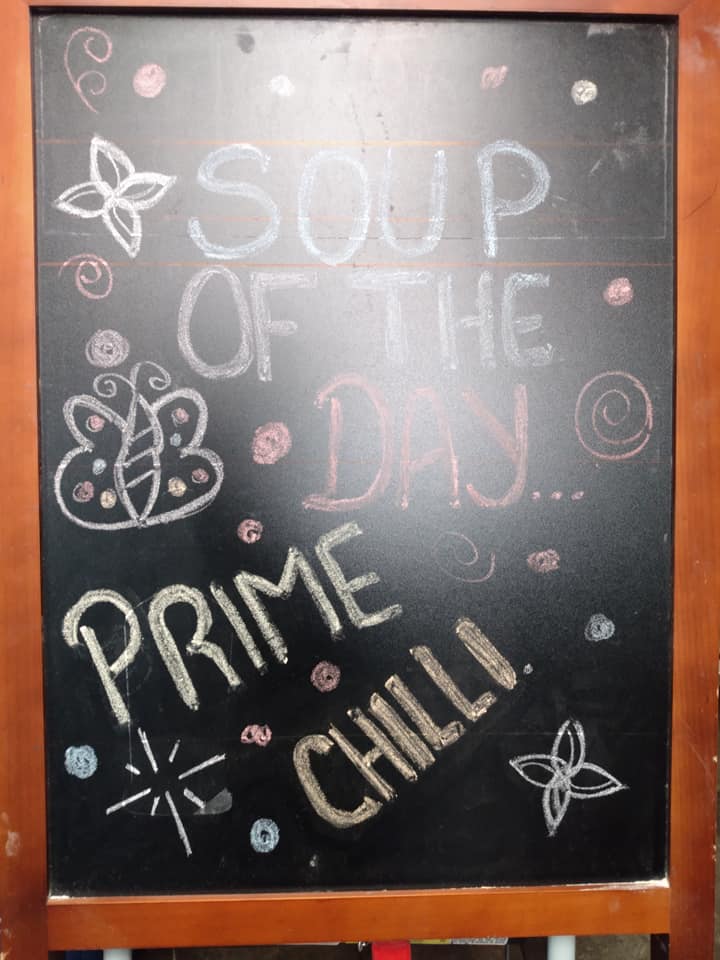 SOUP
OF THE
DAY...
PRIME
CHILLI